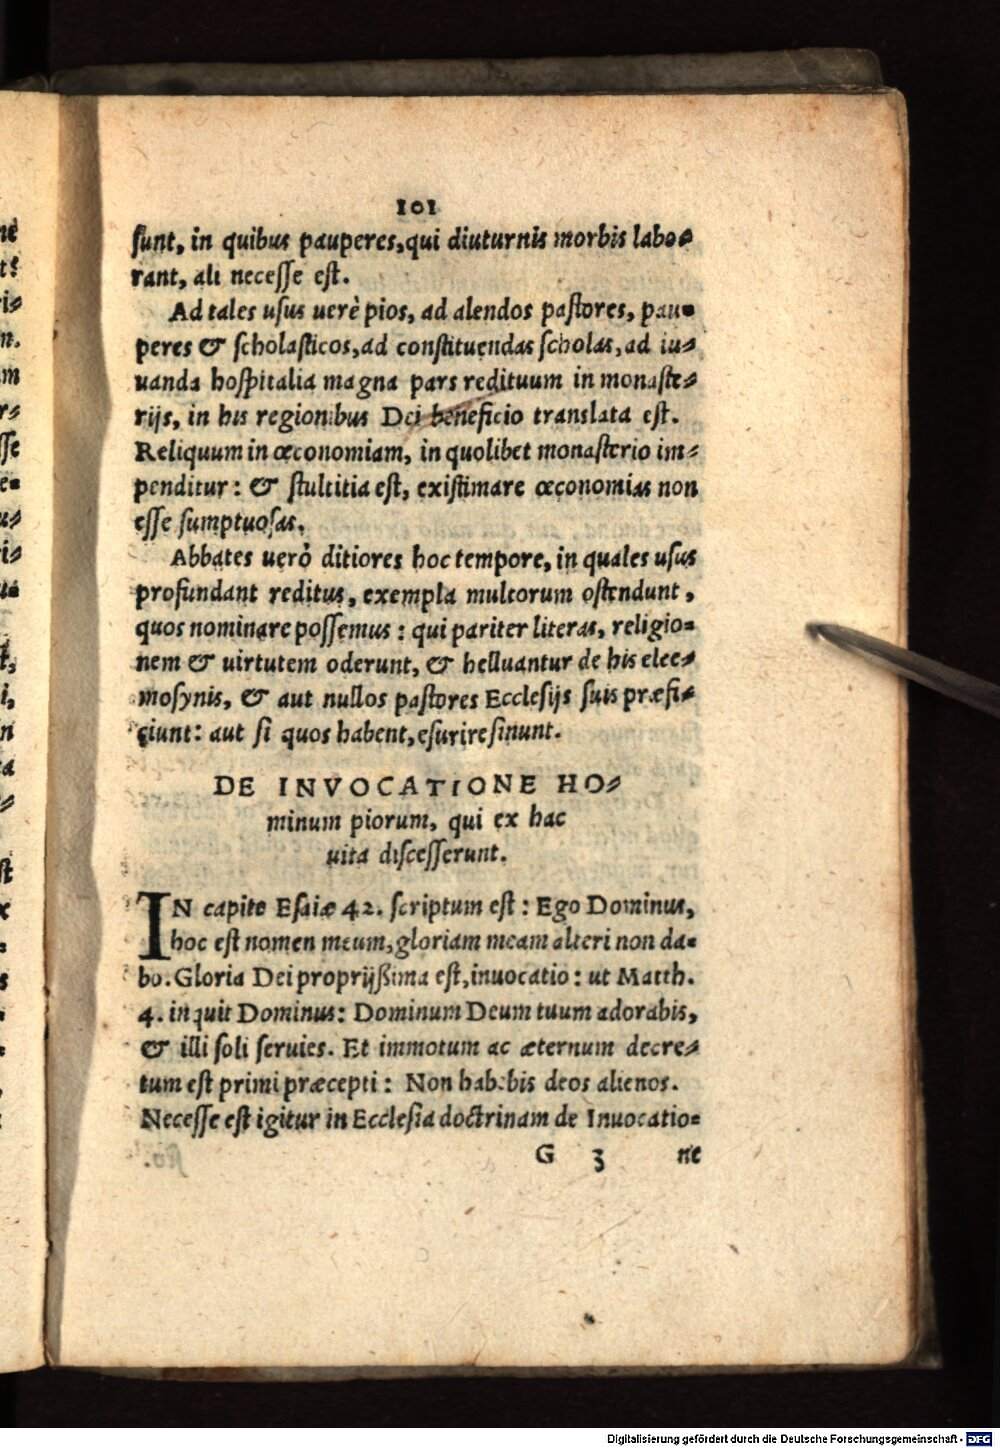 101
sunt, in quibus pauperes, qui diuturnis morbis labo-
rant, ali necesse est.
Ad tales usus uerè pios, ad alendos pastores, pau-
peres & scholasticos, ad constituendas scholas, ad iu-
uanda hospitalia magna pars redituum in monaste-
rijs, in his regionibus Dei beneficio translata est.
Reliquum in œconomiam, in quolibet monasterio im-
penditur: & stultitia est, existimare œconomias non
esse sumptuosas.
Abbates uerò ditiores hoc tempore, in quales usus
profundant reditus, exempla multorum ostendunt,
quos nominare possemus: qui pariter literas, religio-
nem & uirtutem oderunt, & helluantur de his elee-
mosynis, & aut nullos pastores Ecclesijs suis præfi-
ciunt: aut si quos habent, esurire sinunt.
DE INVOCATIONE HO-
minum piorum, qui ex hac
uita discesserunt.
IN capite Esaiæ 42. scriptum est: Ego Dominus,
hoc est nomen meum, gloriam meam alteri non da-
bo. Gloria Dei proprijssima est, inuocatio: ut Matth.
4. inquit Dominus: Dominum Deum tuum adorabis,
& illi soli seruies. Et immotum ac æternum decre-
tum est primi præcepti: Non habebis deos alienos.
Necesse est igitur in Ecclesia doctrinam de Inuocatio-
G 3 ne
Digitalisierung gefördert durch die Deutsche Forschungsgemeinschaft - DFG